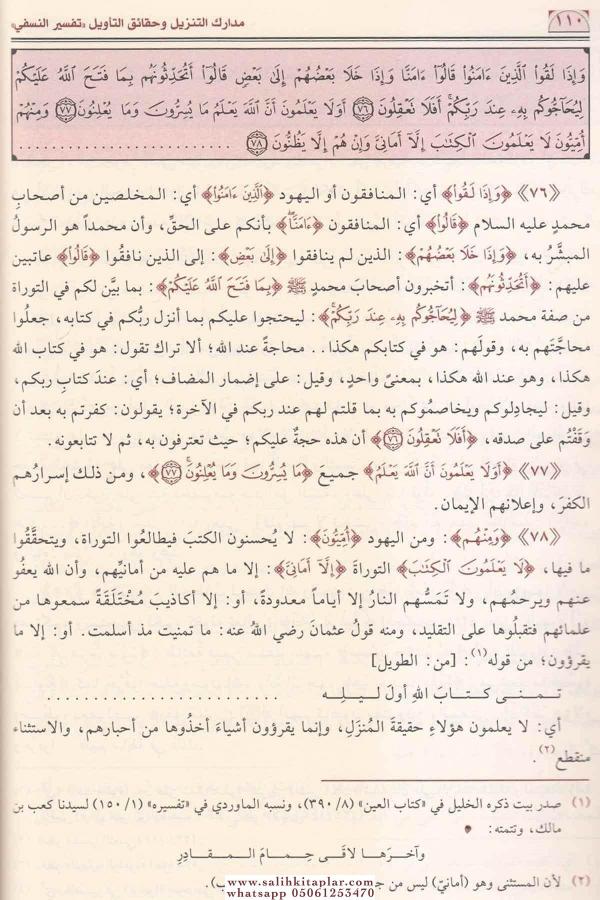 ١١٠ مدارك التنزيل وحقائق التأويل «تفسير النسفي»
وَإِذَا لَقُوا۟ ٱلَّذِينَ ءَامَنُوا۟ قَالُوٓا۟ ءَامَنَّا وَإِذَا خَلَا بَعْضُهُمْ إِلَىٰ بَعْضٍ قَالُوٓا۟ أَتُحَدِّثُونَهُم بِمَا فَتَحَ ٱللَّهُ عَلَيْكُمْ
لِيُحَآجُّوكُم بِهِۦ عِندَ رَبِّكُمْ ۚ أَفَلَا تَعْقِلُونَ ﴿٧٦﴾ أَوَلَا يَعْلَمُونَ أَنَّ ٱللَّهَ يَعْلَمُ مَا يُسِرُّونَ وَمَا يُعْلِنُونَ ﴿٧٧﴾ وَمِنْهُمْ
أُمِّيُّونَ لَا يَعْلَمُونَ ٱلْكِتَـٰبَ إِلَّآ أَمَانِىَّ وَإِنْ هُمْ إِلَّا يَظُنُّونَ ﴿٧٨﴾ ..............................
﴿٧٦﴾ ﴿وَإِذَا لَقُوا۟﴾ أي: المنافقون أو اليهود ﴿ٱلَّذِينَ ءَامَنُوا۟﴾ أي: المخلصين من أصحابِ
محمدٍ عليه السلام ﴿قَالُوٓا۟﴾ أي: المنافقون ﴿ءَامَنَّا﴾ بأنكم على الحقِّ، وأن محمداً هو الرسولُ
المبشَّرُ به، ﴿وَإِذَا خَلَا بَعْضُهُمْ﴾: الذين لم ينافقوا ﴿إِلَىٰ بَعْضٍ﴾: إلى الذين نافقُوا ﴿قَالُوٓا۟﴾ عاتبين
عليهم: ﴿أَتُحَدِّثُونَهُم﴾: أتخبرون أصحابَ محمدٍ ﷺ ﴿بِمَا فَتَحَ ٱللَّهُ عَلَيْكُمْ﴾: بما بيَّن لكم في التوراة
من صفة محمد ﷺ ﴿لِيُحَآجُّوكُم بِهِۦ عِندَ رَبِّكُمْ ۚ﴾: ليحتجوا عليكم بما أنزل ربُّكم في كتابه، جعلُوا
محاجَّتَهم به، وقولَهم: هو في كتابكم هكذا.. محاجةً عند الله؛ ألا تراك تقول: هو في كتاب الله
هكذا، وهو عند الله هكذا، بمعنىً واحدٍ، وقيل: على إضمار المضاف؛ أي: عندَ كتابِ ربكم،
وقيل: ليجادِلوكم ويخاصِمُوكم به بما قلتم لهم عند ربكم في الآخرة؛ يقولون: كفرتم به بعد أن
وَقَفْتُم على صدقه، ﴿أَفَلَا تَعْقِلُونَ ﴿٧٦﴾﴾ أن هذه حجةٌ عليكم؛ حيث تعترفون به، ثم لا تتابعونه.
﴿٧٧﴾ ﴿أَوَلَا يَعْلَمُونَ أَنَّ ٱللَّهَ يَعْلَمُ﴾ جميعَ ﴿مَا يُسِرُّونَ وَمَا يُعْلِنُونَ ﴿٧٧﴾﴾، ومن ذلك إسرارُهم
الكفرَ، وإعلانهم الإيمان.
﴿٧٨﴾ ﴿وَمِنْهُمْ﴾: ومن اليهود ﴿أُمِّيُّونَ﴾: لا يُحسنون الكتبَ فيطالعُوا التوراة، ويتحقَّقُوا
ما فيها، ﴿لَا يَعْلَمُونَ ٱلْكِتَـٰبَ﴾ التوراةَ ﴿إِلَّآ أَمَانِىَّ﴾: إلا ما هم عليه من أمانيِّهم، وأن الله يعفُو
عنهم ويرحمُهم، ولا تَمَسُّهم النارُ إلا أياماً معدودةً، أو: إلا أكاذيبَ مُخْتَلَقَةً سمعوها من
علمائهم فتقبلُوها على التقليد، ومنه قولُ عثمانَ رضي اللهُ عنه: ما تمنيت مذ أسلمت. أو: إلا ما
يقرؤون؛ من قوله(١): [من: الطويل]
تمنى كتابَ اللهِ أولَ ليلِه ..............................
أي: لا يعلمون هؤلاءِ حقيقةَ المُنزَلِ، وإنما يقرؤون أشياءَ أخذُوها من أحبارهم، والاستثناء
منقطع(٢).
(١) صدر بيت ذكره الخليل في «كتاب العين» (٣٩٠/٨)، ونسبه الماوردي في «تفسيره» (١٥٠/١) لسيدنا كعب بن
مالك، وتتمته:
وآخرَها لاقَى حِمامَ المقادِرِ
(٢) لأن المستثنى وهو (أمانيّ) ليس من
www.salihkitaplar.com
whatsapp 05061253470